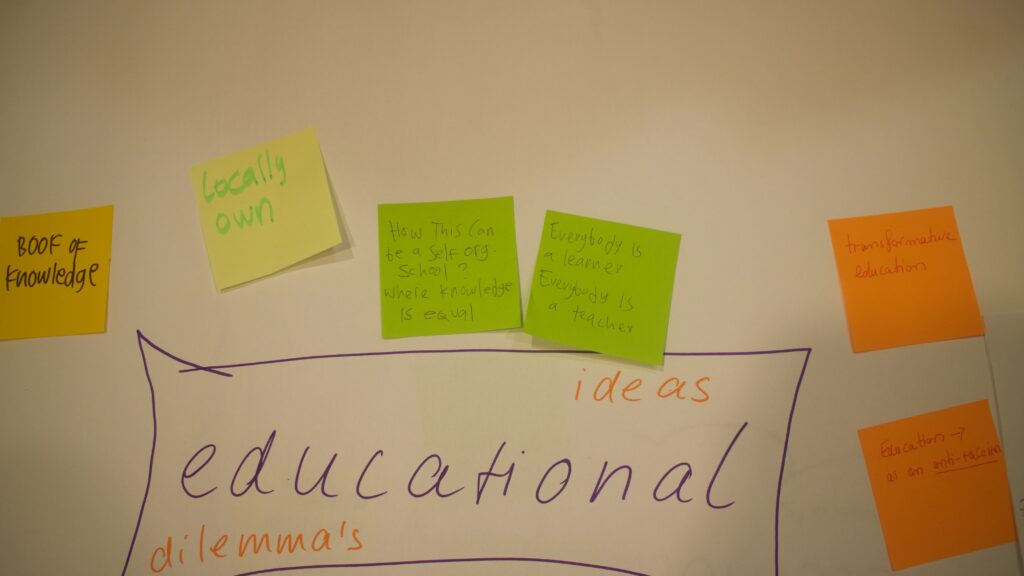 BOOF OF
Knowledge
Locally
own
How This Can
be a Self org.
School?
where knowledge
is equal
Everybody is
a learner
Everybody Is
a teacher
transformative
education
Education →
as an anti-racism
ideas
educational
dilemma's